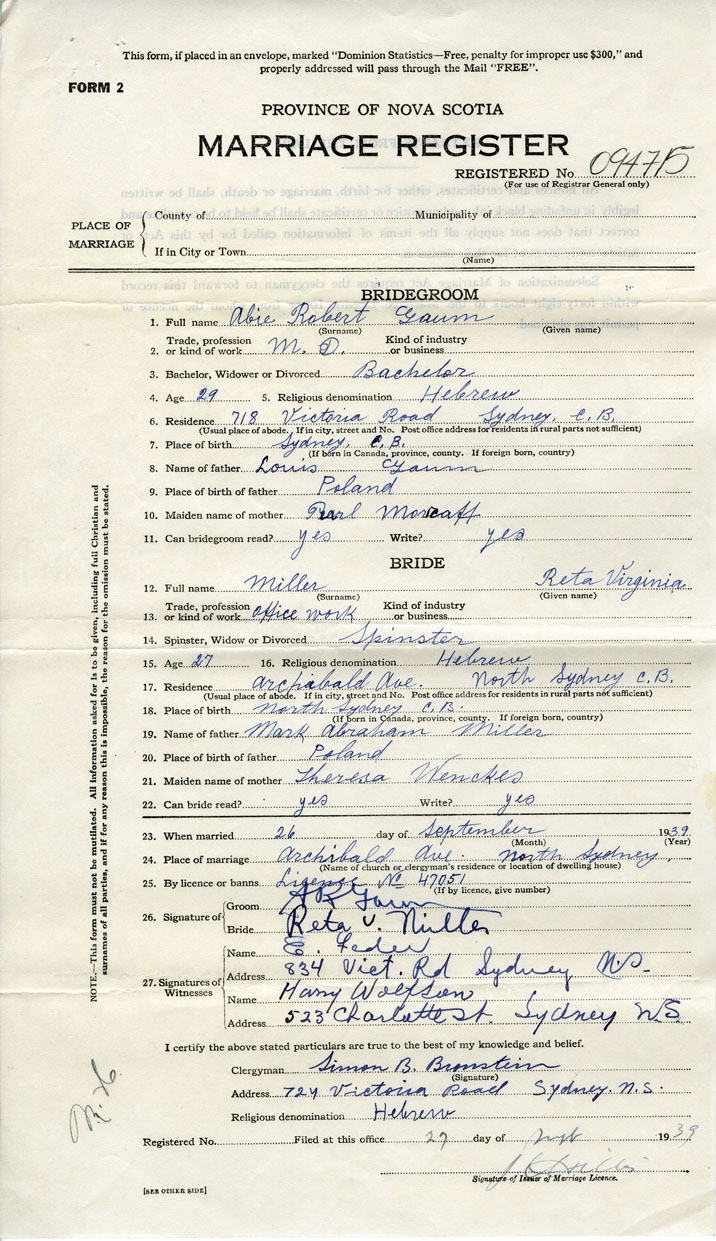 This form, if placed in an envelope, marked "Dominion Statistics—Free, penalty for improper use $300," and
properly addressed will pass through the Mail "FREE".
FORM 2
PROVINCE OF NOVA SCOTIA
MARRIAGE REGISTER
REGISTERED No. 094715
(For use of Registrar General only)
PLACE OF MARRIAGE
County of Municipality of
If in City or Town
(Name)
BRIDEGROOM
1. Full name Abie Robert Gaum
(Surname) (Given name)
2. Trade, profession or kind of work M. D. Kind of industry or business
3. Bachelor, Widower or Divorced Bachelor
4. Age 29 5. Religious denomination Hebrew
6. Residence 718 Victoria Road Sydney, C.B.
(Usual place of abode. If in city, street and No. Post office address for residents in rural parts not sufficient)
7. Place of birth Sydney, C.B.
(If born in Canada, province, county. If foreign born, country)
8. Name of father Louis Gaum
9. Place of birth of father Poland
10. Maiden name of mother Pearl
11. Can bridegroom read? yes Write? yes
BRIDE
12. Full name Miller Reta Virginia
(Surname) (Given name)
13. Trade, profession or kind of work office work Kind of industry or business
14. Spinster, Widow or Divorced Spinster
15. Age 27 16. Religious denomination Hebrew
17. Residence Archibald Ave. North Sydney C.B.
(Usual place of abode. If in city, street and No. Post office address for residents in rural parts not sufficient)
18. Place of birth North Sydney C.B.
(If born in Canada, province, county. If foreign born, country)
19. Name of father Mark Abraham Miller
20. Place of birth of father Poland
21. Maiden name of mother Theresa Wenckes
22. Can bride read? yes Write? yes
23. When married 26 day of September 1939
(Month) (Year)
24. Place of marriage Archibald Ave. North Sydney,
(Name of church or clergyman's residence or location of dwelling house)
25. By licence or banns License No 47051
(If by licence, give number)
26. Signature of
Groom A R Gaum
Bride Reta V. Miller
27. Signatures of Witnesses
Name E. Feder
Address 834 Vict. Rd Sydney N.S.
Name Harry Wolfson
Address 523 Charlotte St. Sydney N.S.
I certify the above stated particulars are true to the best of my knowledge and belief.
Clergyman Simon B. Bronstein
(Signature)
Address 724 Victoria Road Sydney. N.S.
Religious denomination Hebrew
Registered No. Filed at this office 27 day of Sept 1939
Signature of Issuer of Marriage Licence.
[SEE OTHER SIDE]
NOTE.—This form must not be mutilated. All information asked for is to be given, including full Christian and
surnames of all parties, and if for any reason this is impossible, the reason for the omission must be stated.